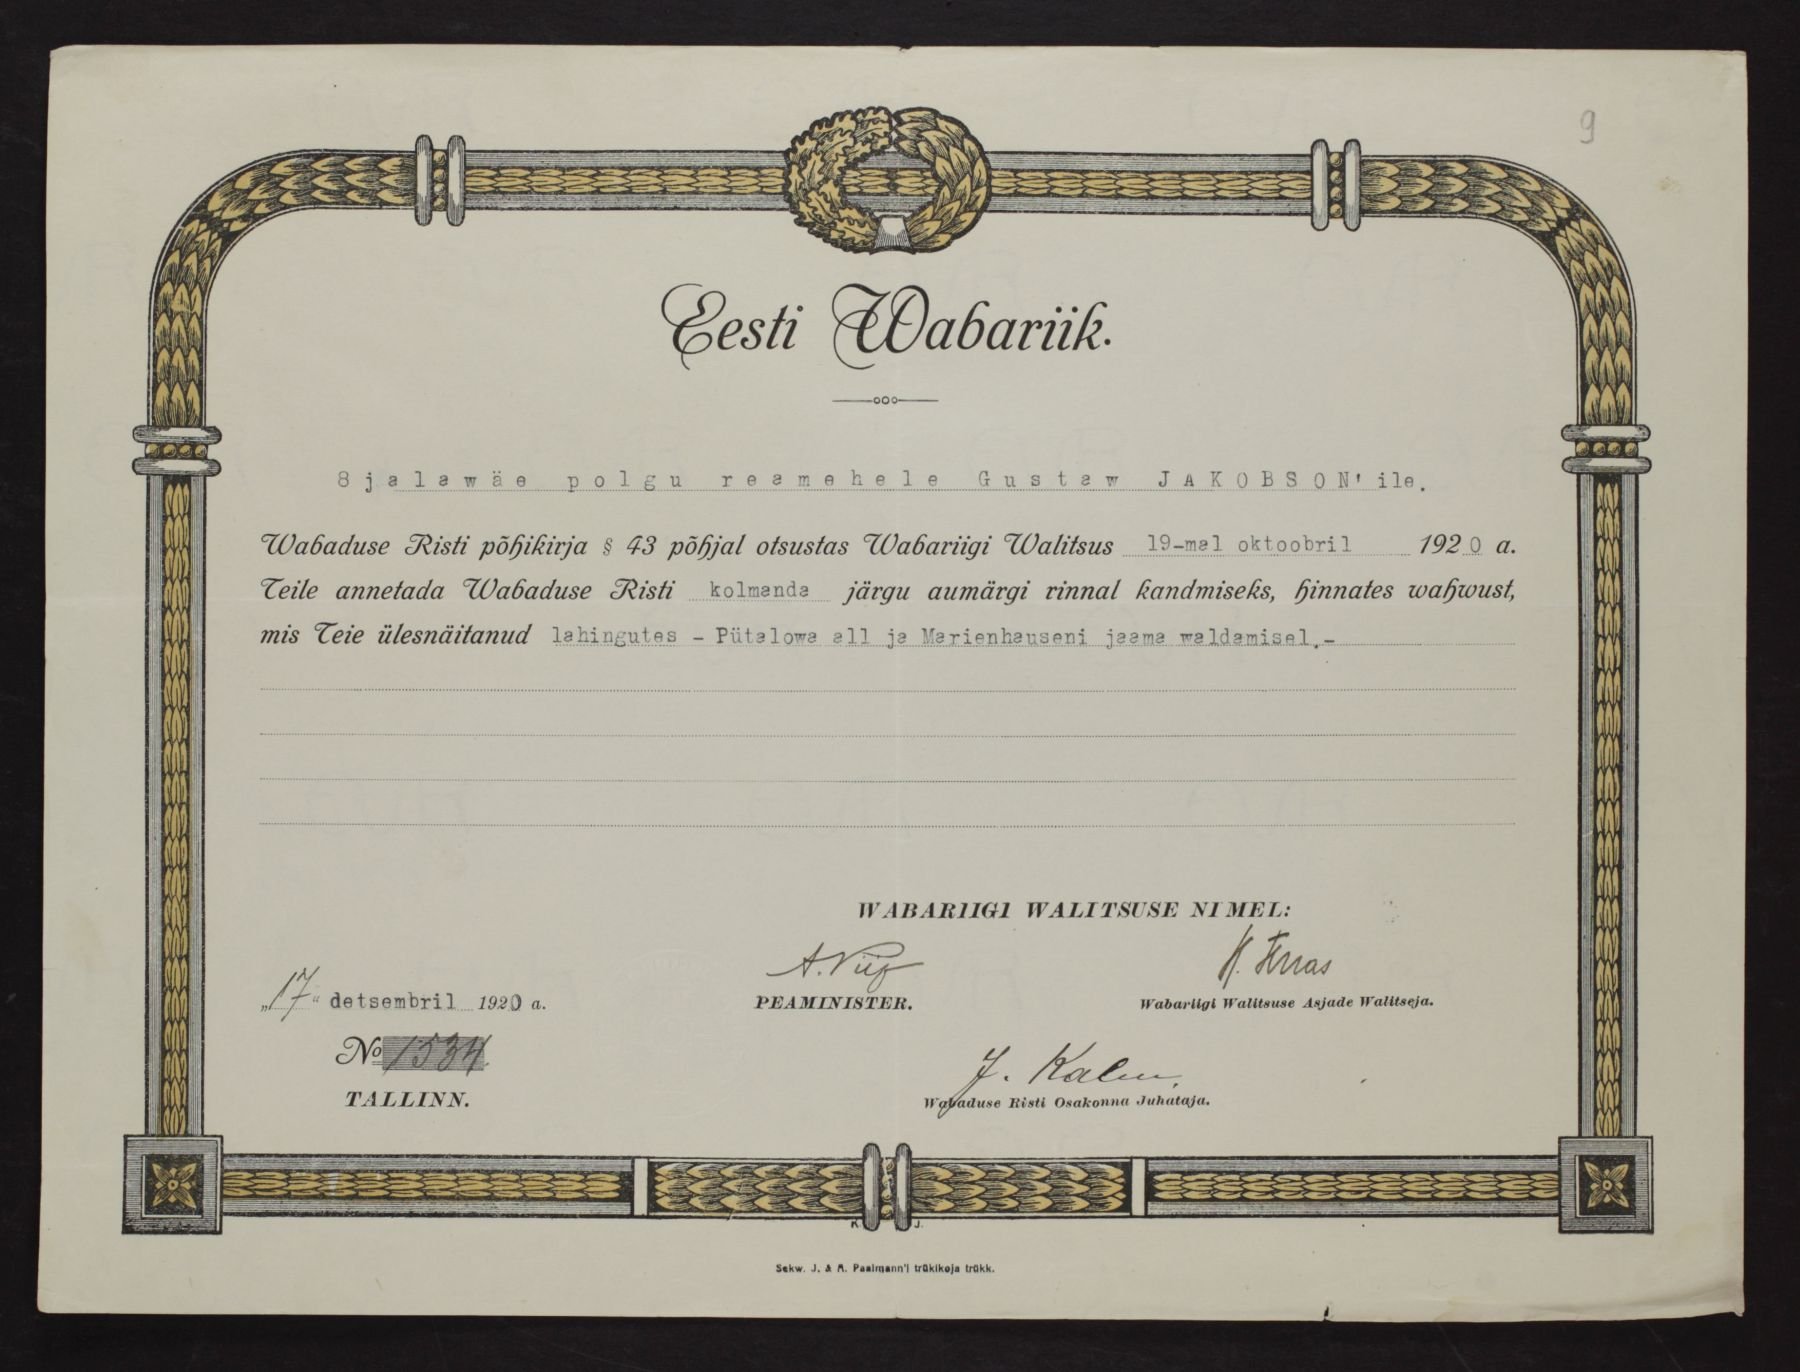 9
Eesti Wabariik.
8 jalawäe polgu reamehele Gustaw JAKOBSON'ile.
Wabaduse Risti põhikirja § 43 põhjal otsustas Wabariigi Walitsus 19-mal oktoobril 1920 a.
Teile annetada Wabaduse Risti kolmanda järgu aumärgi rinnal kandmiseks, hinnates wahwust,
mis Teie ülesnäitanud lahingutes - Pütalowa all ja Marienhauseni jaama waldamisel.-
WABARIIGI WALITSUSE NIMEL:
A. Piip
K. Terras
„17“ detsembril 1920 a.
PEAMINISTER.
Wabariigi Walitsuse Asjade Walitseja.
No 1534
J. Kalm.
TALLINN.
Wabaduse Risti Osakonna Juhataja.
K J.
Sekw. J. & A. Paalmann'i trükikoja trükk.